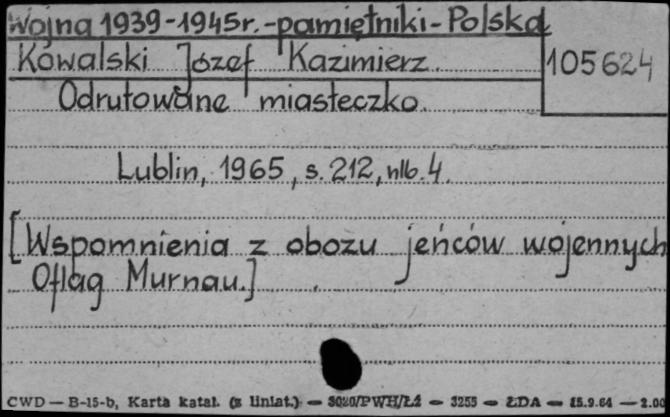 Wojna 1939-1945r.-pamiętniki-Polska
Kowalski Józef Kazimierz
105624
Odrutowane miasteczko.
Lublin, 1965, s. 212, nlb. 4.
[Wspomnienia z obozu jeńców wojennych
Oflag Murnau.]
CWD — B-15-b, Karta katal. (z liniat.) — 3020/PWH/Ł1 — 3255 — ŁDA — 15.9.64 — 2.00